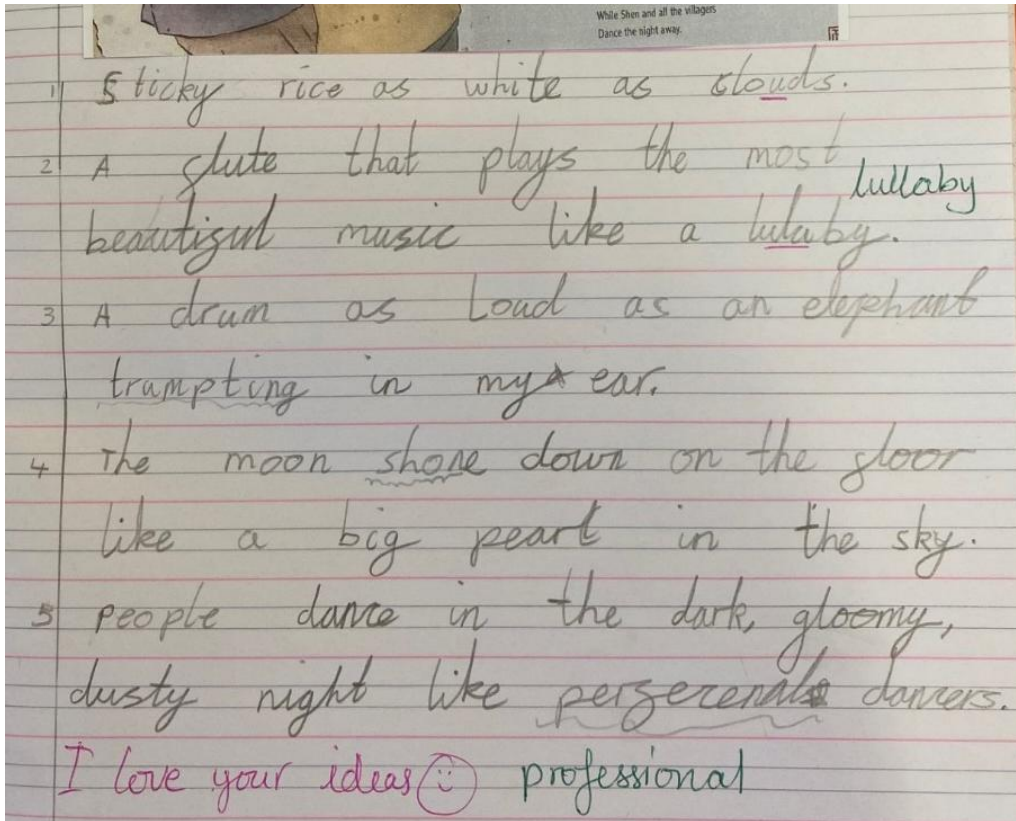 While Shen and all the villagers
Dance the night away.
1 Sticky rice as white as clouds.
2 A flute that plays the most
lullaby
beautiful music like a lulaby.
3 A drum as Loud as an elephant
trampting in my ear.
4 The moon shone down on the floor
like a big pearl in the sky.
5 people dance in the dark, gloomy,
dusty night like perferenals dancers.
I love your ideas professional